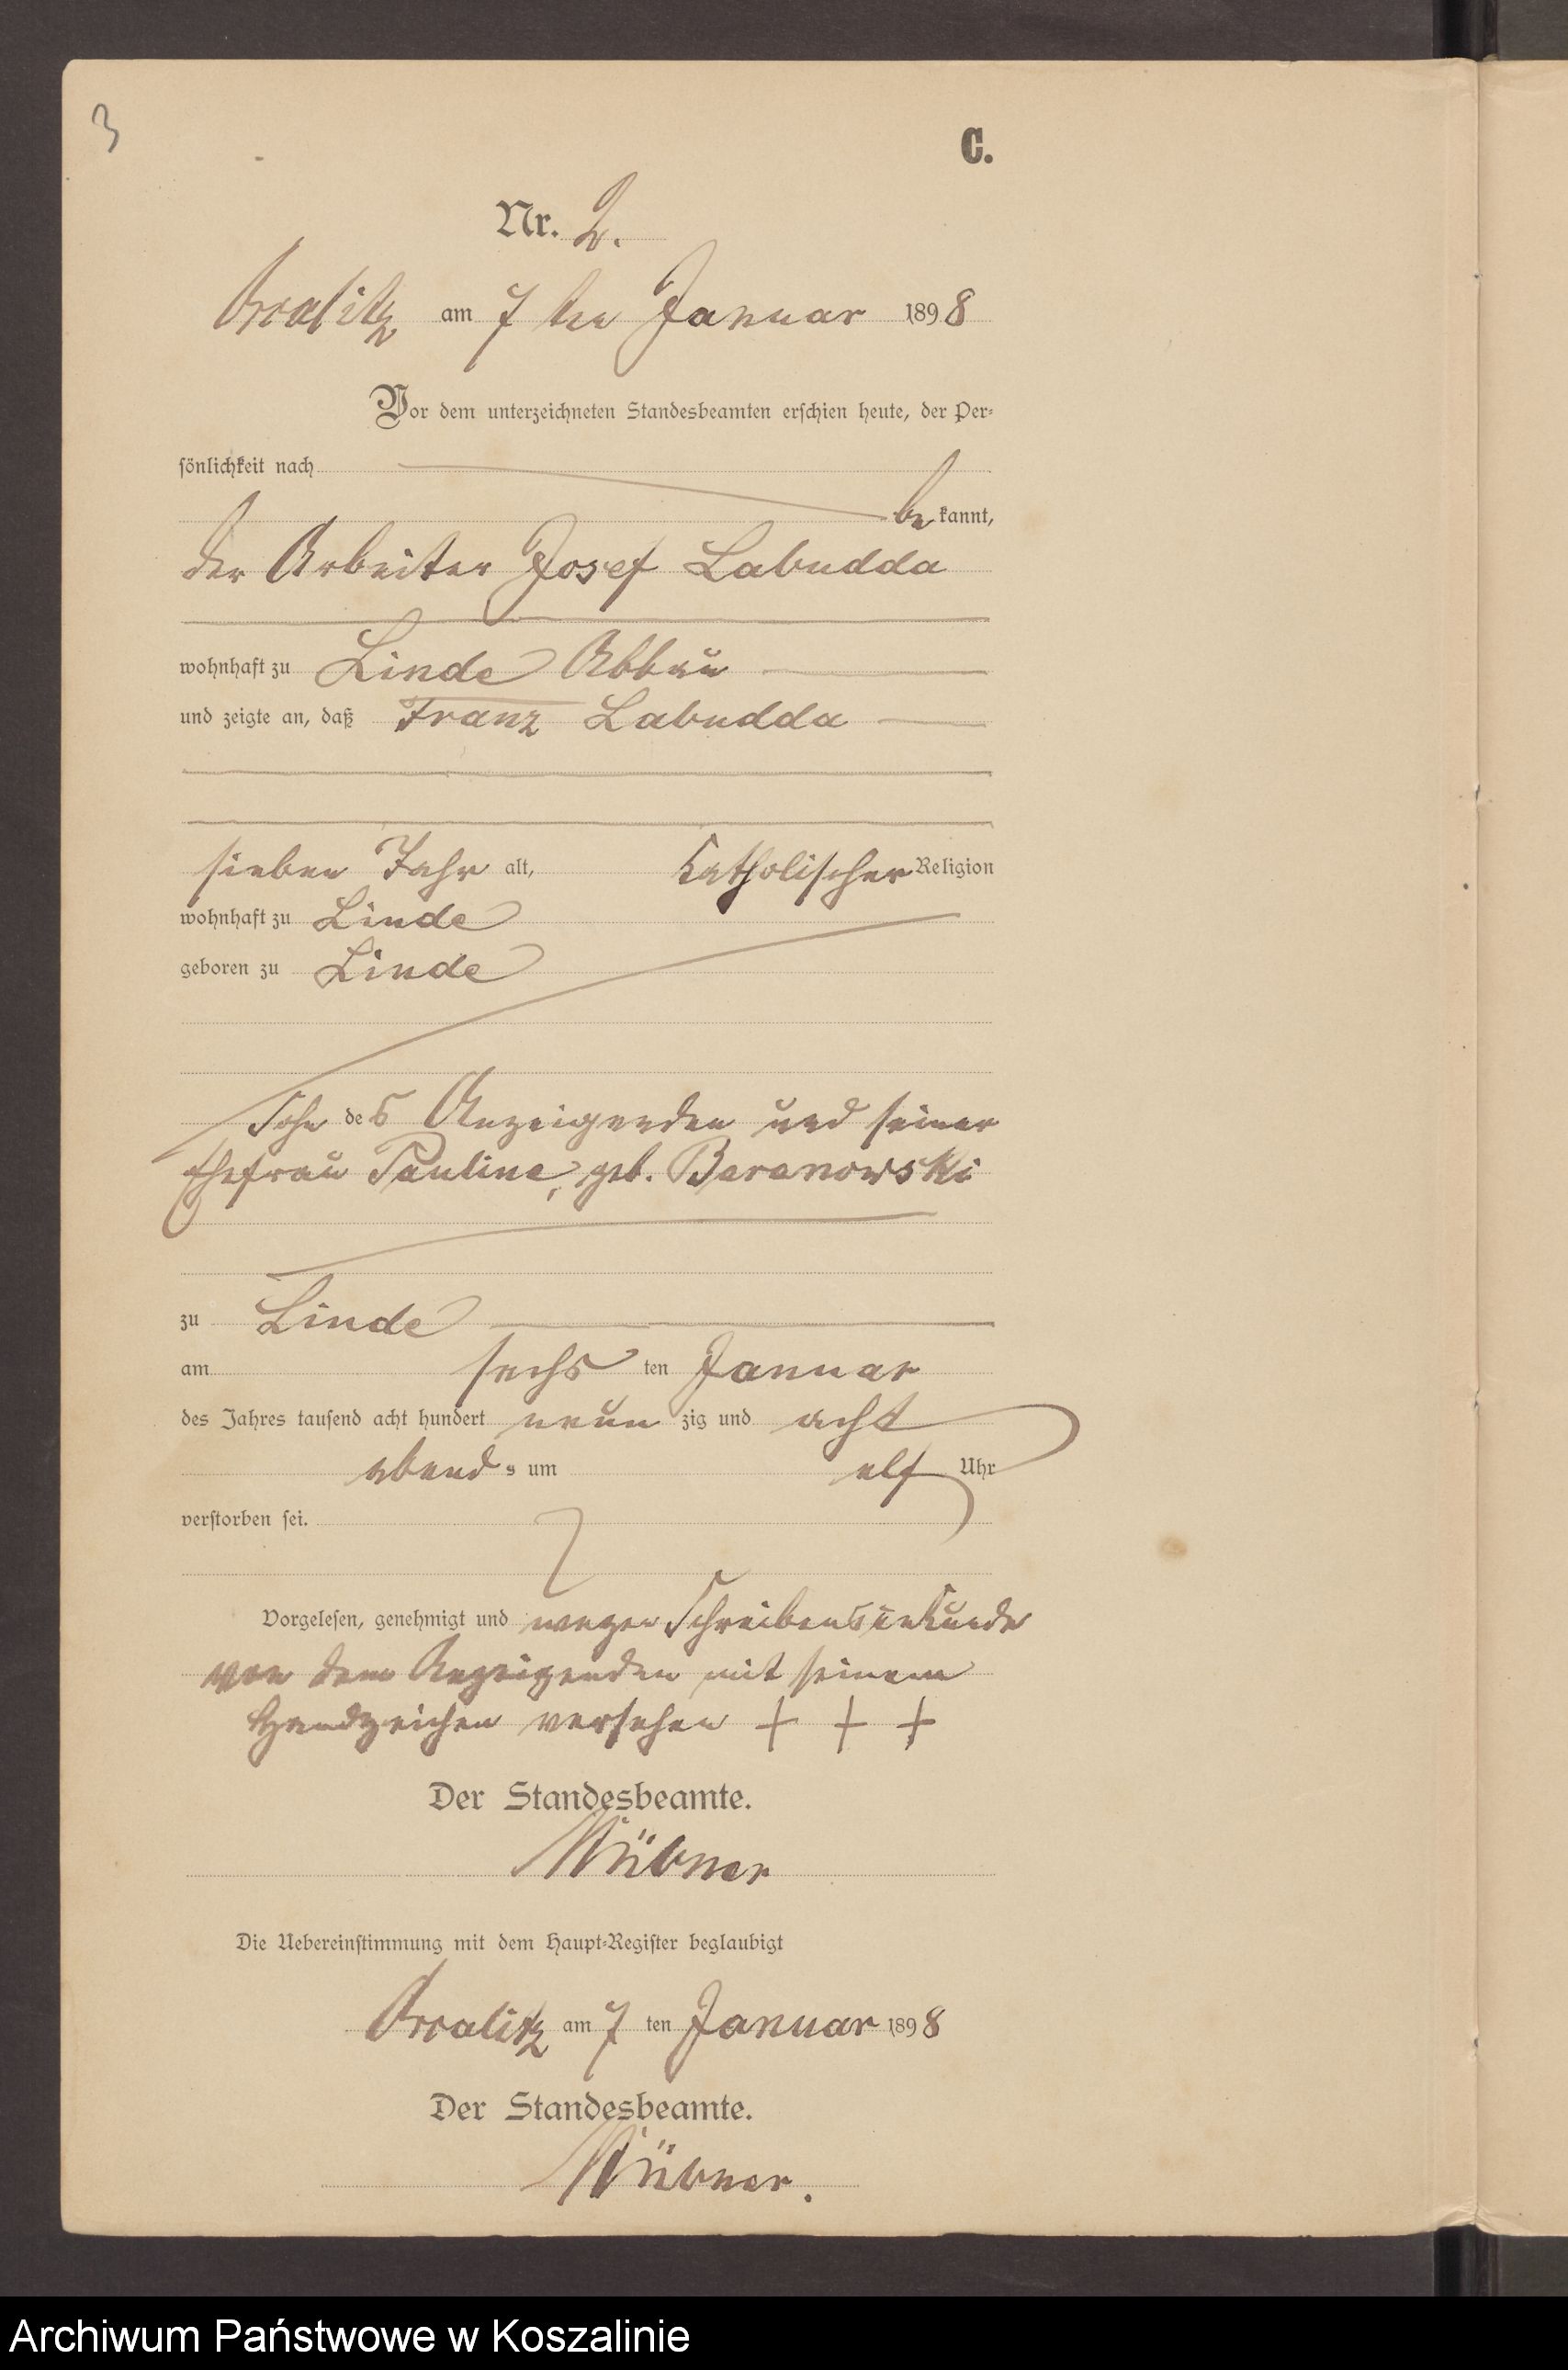 3
C.
Nr. 2.
am 7 ten Januar 1898
Vor dem unterzeichneten Standesbeamten erschien heute, der Per-
sönlichkeit nach
bekannt,
der Arbeiter Josef Labudda
wohnhaft zu Linde Abbau
und zeigte an, daß Franz Labudda
sieben Jahr alt, katholischer Religion
wohnhaft zu Linde
geboren zu Linde
Sohn des Anzeigenden und seiner
Ehefrau Pauline, geb. Baranowski
zu Linde
am sechsten Januar
des Jahres tausend acht hundert neunzig und acht
abends um elf Uhr
verstorben sei.
Vorgelesen, genehmigt und wegen Schreibensunkunde
von dem Anzeigenden mit seinem
Handzeichen versehen + + +
Der Standesbeamte.
Die Uebereinstimmung mit dem Haupt-Register beglaubigt
am 7 ten Januar 1898
Der Standesbeamte.
Archiwum Państwowe w Koszalinie